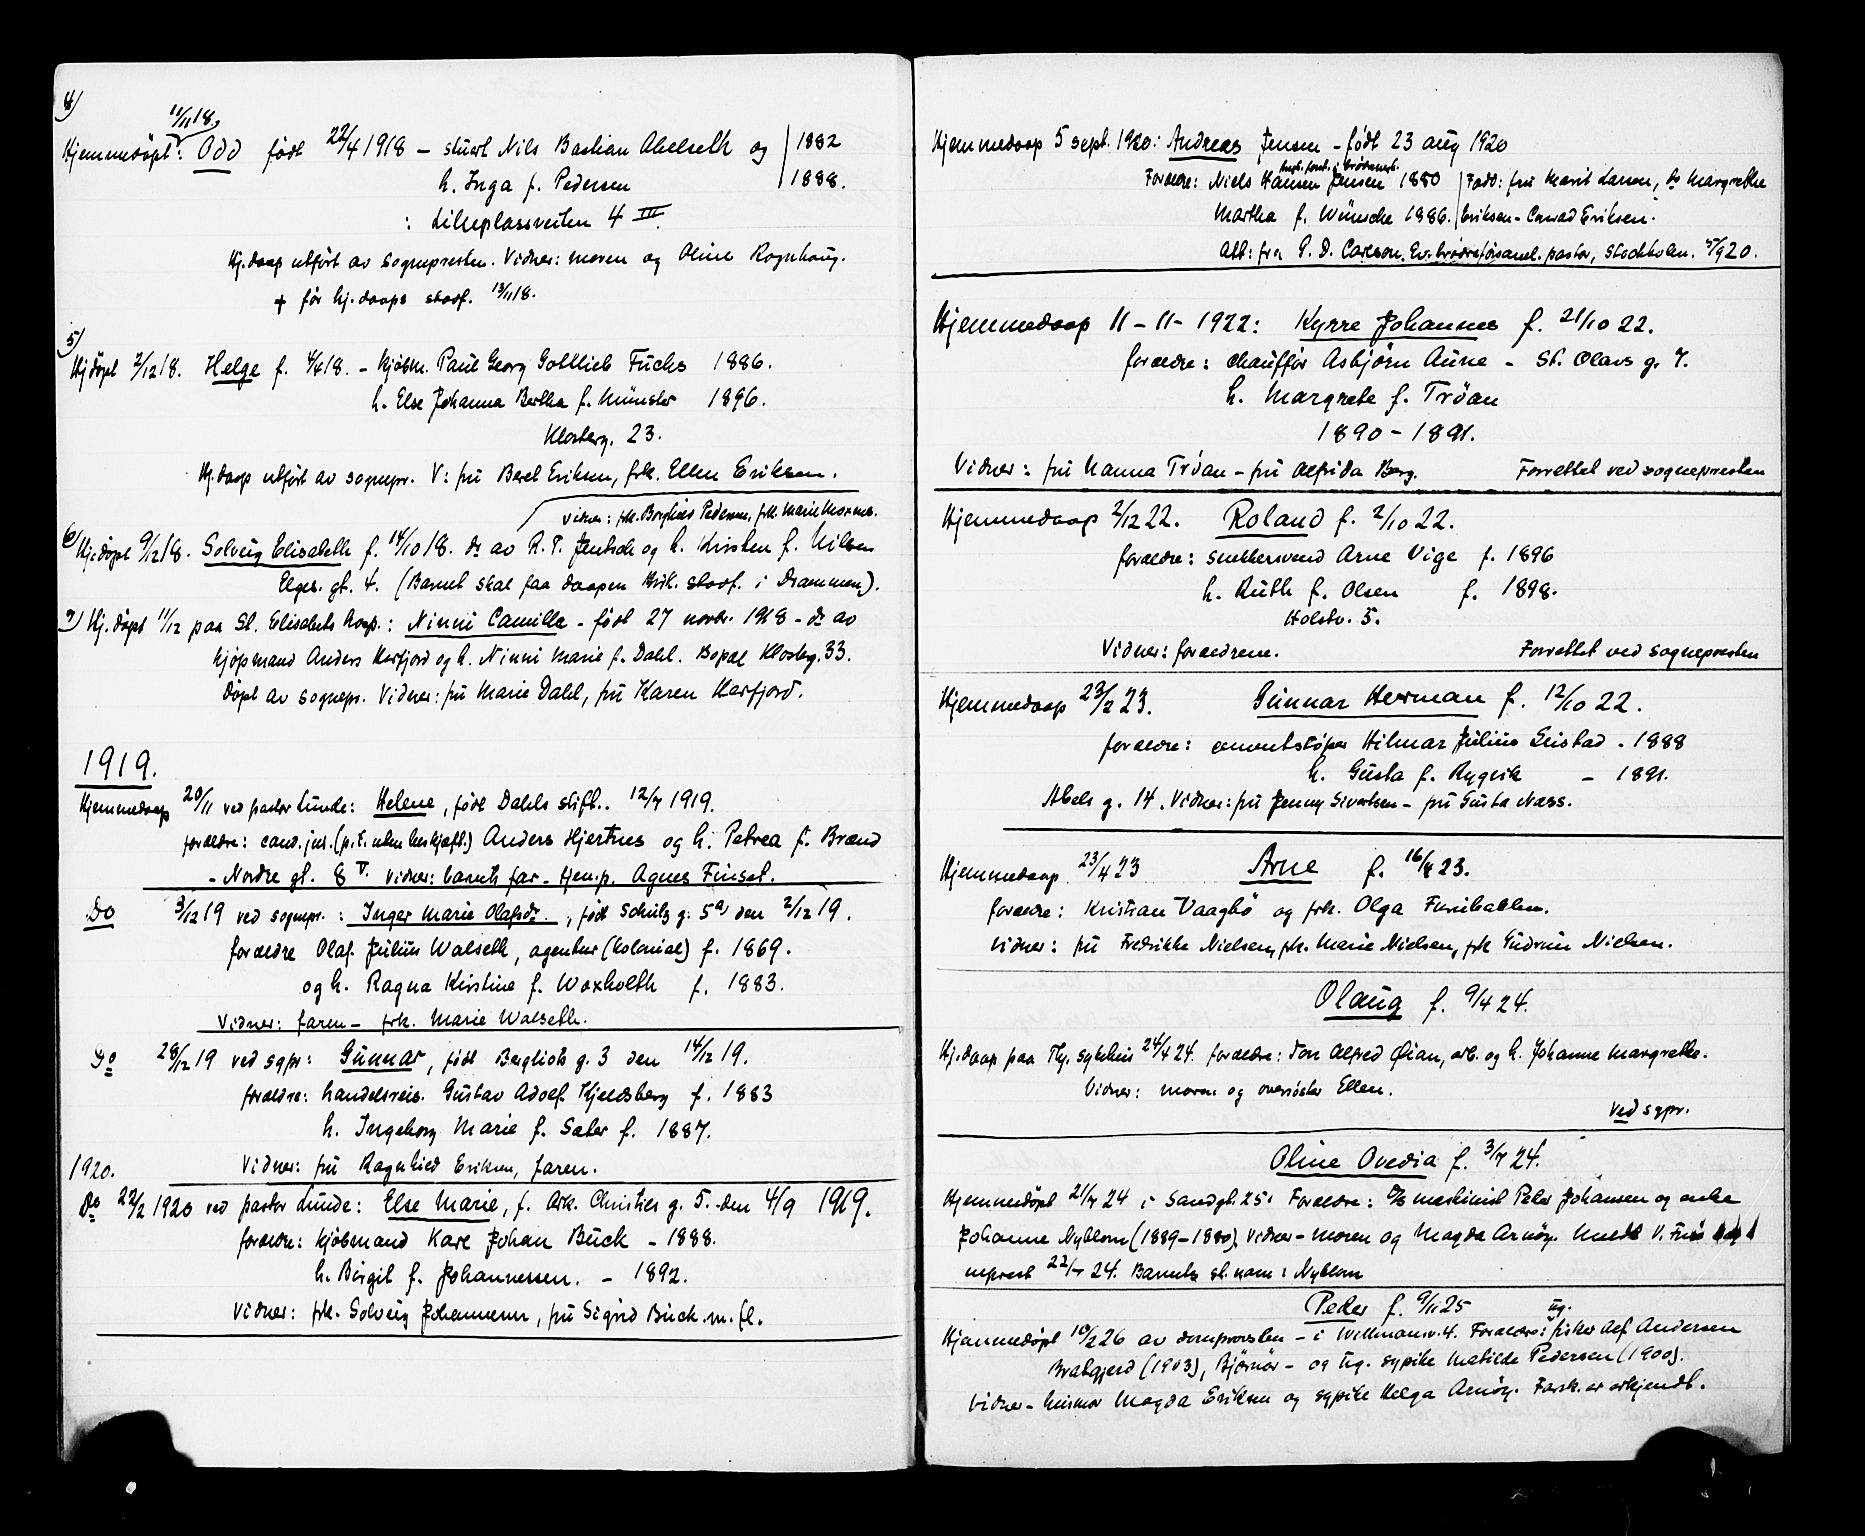 4)
11/11 18.
Hjemmedöpt: Odd født 22/4 1918 – stuert Nils Bastian Abelseth og | 1882
h. Inga f. Pedersen | 1888.
: Lilleplassveiten 4 III.
Hj.daap utført av sognepresten. Vidner: moren og Oline Rognhaug.
+ før hj.daaps stadf. 13/11 18.
5)
Hj.döpt 2/12 18. Helge f. 4/4 18. – Kjöbm. Paul Georg Gottlieb Fuchs 1886.
h. Else Johanna Bertha f. Münster 1896.
Klosterg. 23.
Hj.daap utført av sognepr. V: fru Beret Eriksen, frk. Ellen Eriksen.
Vidner: frk. Borghild Pedersen, frk. Marie Mormo.
6) Hj.döpt 9/12 18. Solveig Elisabeth f. 14/10 18. dr av R. P. Jentsch og h. Kirsten f. Nilsen
Elges. gt. 4. (Barnet skal faa daapen stadf. i Drammen).
7) Hj.döpt 11/12 paa St. Elisabets hosp.: Ninni Camilla – født 27 novbr. 1918 – dr av
kjøpmand Anders Harfjord og h. Ninni Marie f. Dahl. Bopæl Klosterg. 33.
Döpt av sognepr. Vidner: fru Marie Dahl, fru Karen Harfjord.
1919.
Hjemmedaap 20/11 ved pastor Lunde: Helene, født Dahls stift.. 12/7 1919.
forældre: cand. jur. (p.t. uten beskjæft.) Anders Hjertnes og h. Petrea f. Brænd
– Nordre gt. 8 V. Vidner: barnets far – Hjem.p. Agnes Finset.
Do 3/12 19 ved sognepr.: Inger Marie Olafsdr., født Schultz g. 5a) den 2/12 19.
forældre Olaf Julius Walseth, agentur (kolonial) f. 1869.
og h. Ragna Kirstine f. Woxholth f. 1883.
Vidner: faren – frk. Marie Walseth.
Do 28/12 19 ved sgpr: Gunnar, født Bergliots g. 3 den 14/12 19.
forældre: handelsreis. Gustav Adolf Kjeldsberg f. 1883
h. Ingeborg Marie f. Sæter f. 1887.
1920. Vidner: fru Ragnhild Eriksen, faren.
Do 22/2 1920 ved pastor Lunde: Else Marie, f. Ark. Christies g. 5. den 4/9 1919.
forældre: kjöbmand Karl Johan Buck – 1888.
h. Birgit f. Johannessen. – 1892.
Vidner: frk. Solveig Johannessen, fru Sigrid Buck m. fl.
Hjemmedaap 5 sept. 1920: Andreas Jensen – født 23 aug 1920
Forældre: Niels Hansen Jensen 1880 | Fadd: fru Marit Larsen, do Margrethe
Martha f. Wünsche 1886. | Eriksen – Conrad Eriksen.
Att: fra P. D. Carlson, Ev. brødreførsaml. pastor, Stockholm. 5/9 20.
Hjemmedaap 11 – 11 – 1922: Kyrre Johannes f. 21/10 22.
forældre: chauffør Asbjørn Aune – St. Olavs g. 7.
h. Margrete f. Tröan
1890 – 1891.
Vidner: fru Nanna Tröan – fru Alfrida Berg. Forrettet ved sognepresten
Hjemmedaap 2/12 22. Roland f. 2/10 22.
forældre: snekkersvend Arne Vige f. 1896
h. Ruth f. Olsen f. 1898.
Holstv. 5.
Vidner: forældrene. Forrettet ved sognepresten
Hjemmedaap 23/2 23. Gunnar Herman f. 12/10 22.
forældre: cementstøper Hilmar Julius Geistad – 1888
h. Gusta f. Rygvik – 1891.
Abels g. 14. Vidner: fru Jenny Sivertsen – fru Gusta Næss.
Hjemmedaap 23/4 23 Arne f. 16/4 23.
forældre: Kristian Vaagbö og frk. Olga Furubakken.
Vidner: fru Fredrikke Nielsen, frk. Marie Nielsen, frk Gudrun Nielsen.
Olaug f. 9/4 24.
Hj.daap paa Thj. sykehus 24/4 24. forældre: Jon Alfred Øian, arb. og h. Johanne Margrethe.
Vidner: moren og oversøster Ellen.
ved sgpr.
Oline Ovedia f. 3/7 24.
Hjemmedöpt 21/7 24 i Sandgt. 25. Forældre: maskinist Peter Johansen og enke
Johanne Nyblom (1889 – 1880). Vidner – moren og Magda Arnöy. Meldt V. Frue
22/7 24. Barnets sl.navn: Nyblom
Peder f. 9/11 25
Hjemmedöpt 10/2 26 av domprovsten – i Willmannsv. 4. Forældre: ug. fisker Alf Andersen
Bratgjerd (1903), Bjørnör – og ug. sypike Matilde Pedersen (1900).
Vidner – husmor Magda Eriksen og sypike Helga Arnöy. Farsk. er erkjendt.